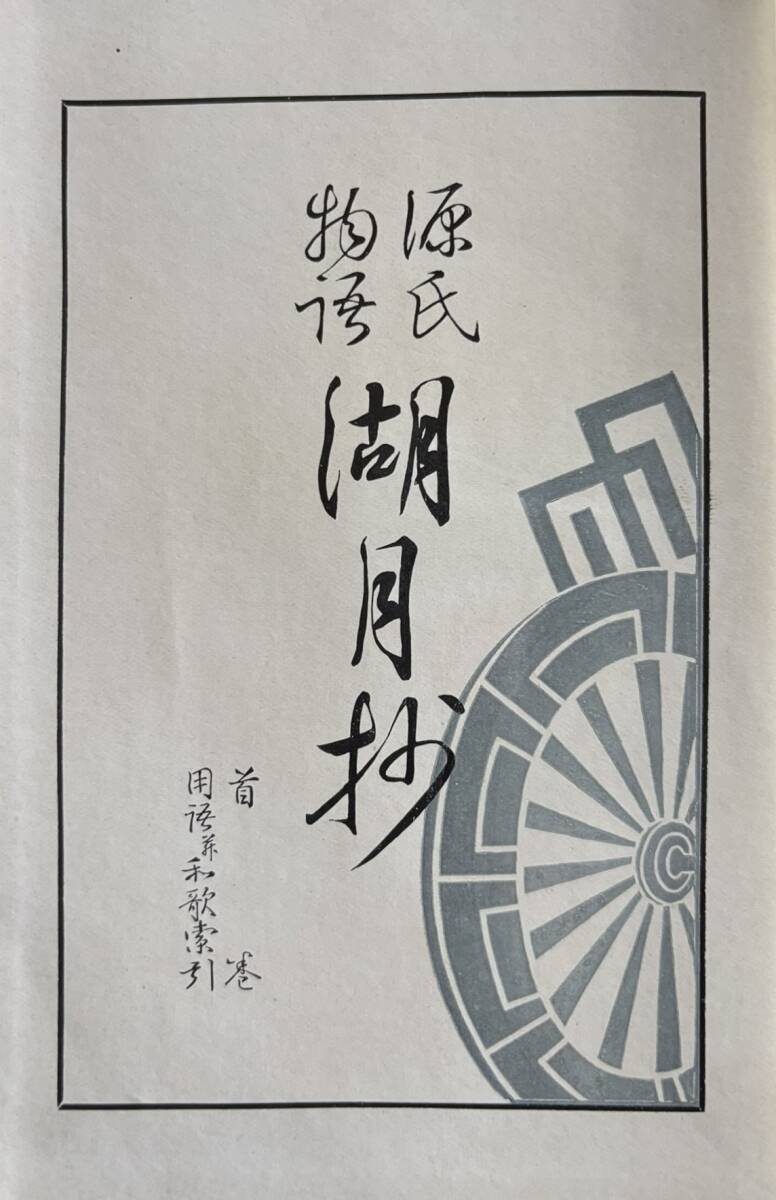 源氏
物語
湖月抄
首巻
用語并和歌索引